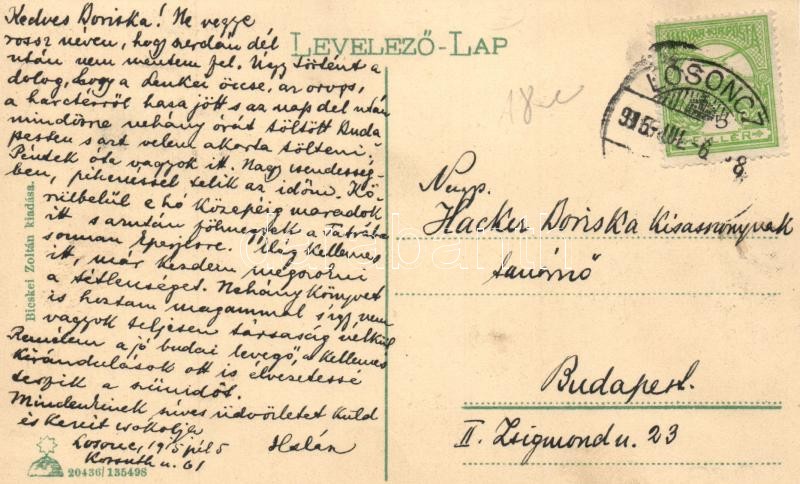 Kedves Doriska! Ne vegye
rossz néven, hogy szerdán dél
után nem mentem fel. Úgy történt a
dolog, hogy a öccse, az orvos,
a harctérről haza jött s az nap dél után
mindössze néhány órát töltött Buda-
pesten s azt velem akarta tölteni;
Péntek óta vagyok itt. Nagy csendesség-
ben, pihenéssel telik az időm. Kö-
rülbelül e hó közepéig maradok
itt s azután fölmegyek a Tátrába
onnan Eperjesre. Elég kellemes
itt, már kezdem megszokni
a tétlenséget. Néhány könyvet
is hoztam magammal s így nem
vagyok teljesen társaság nélkül
Remélem a jó budai levegő, a kellemes
kirándulások ott is élvezetessé
teszik a szünidőt.
Mindenkinek szíves üdvözletet küld
és kezeit csókolja
Losonc, 1915 júl 5
Kossuth u. 61
LEVELEZŐ-LAP
Bicskei Zoltán kiadása.
20436/135498
MAGYAR KIR. POSTA
LOSONCZ
915 JUL. 6
FILLÉR
Nagys.
Hacker Doriska kisasszonynak
tanárnő
Budapest.
II. Zsigmond u. 23